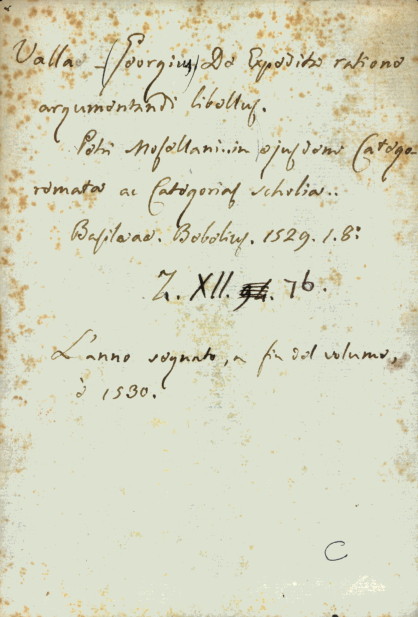 Vallae (Georgius) De Expedita ratione
argumentandi libellus.
Petri Mosellani in ejusdem Catego-
remata ac Categorias scholia..
Basileae. Bebelius. 1529. 1. 8°
Z. XII. 76.
L'anno segnato, a fin del volume,
è 1530.
C